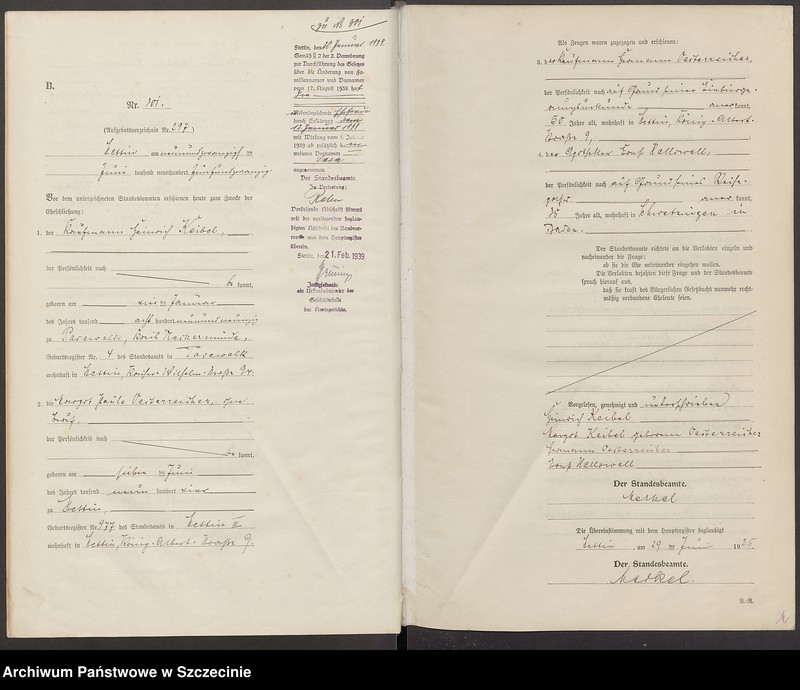 B.
Nr. 801.
(Aufgebotsverzeichnis Nr. 297.)
Stettin am neunundzwanzigsten
Juni tausend neunhundert fünfundzwanzig
Vor dem unterzeichneten Standesbeamten erschienen heute zum Zwecke der
Eheschließung:
1. der Kaufmann Heinrich Keibel,
der Persönlichkeit nach
be kannt,
geboren am Januar
des Jahres tausend acht hundert neunundneunzig
zu Pasewalk, Kreis Ueckermünde,
Geburtsregister Nr. 4 des Standesamts in Pasewalk
wohnhaft in Stettin, Kaiser-Wilhelm-Straße
2. die Margot Paula Oesterreicher, ohne
Beruf,
der Persönlichkeit nach
be kannt,
geboren am sieben Juni
des Jahres tausend neun hundert vier
zu Stettin,
Geburtsregister Nr. 977 des Standesamts in Stettin II
wohnhaft in Stettin, König-Albert-Straße 9.
zu Nr 801
Stettin, den Januar 1939.
Gemäß § 2 der 2. Verordnung
zur Durchführung des Gesetzes
über die Änderung von Fa-
miliennamen und Vornamen
vom 17. August 1938 hat
durch Erklärung
Januar
mit Wirkung vom 1. Januar
1939 ab zusätzlich
weiteren Vornamen
Sara
angenommen.
Der Standesbeamte.
In Vertretung:
Vorstehende Abschrift stimmt
mit der
überein.
Stettin, den 21. Feb. 1939
Geschäftsstelle
des Amtsgerichts.
Als Zeugen waren zugezogen und erschienen:
3. der Kaufmann Hermann Oesterreicher,
der Persönlichkeit nach auf Grund seiner
aner kannt,
Jahre alt, wohnhaft in Stettin, König-Albert-
Straße 9,
4. der Apotheker Hallowell,
der Persönlichkeit nach auf Grund seines Reise-
passes aner kannt,
35 Jahre alt, wohnhaft in Schwetzingen in
Baden.
Der Standesbeamte richtete an die Verlobten einzeln und
nacheinander die Frage:
ob sie die Ehe miteinander eingehen wollen.
Die Verlobten bejahten diese Frage und der Standesbeamte
sprach hierauf aus,
daß sie kraft des Bürgerlichen Gesetzbuchs nunmehr recht-
mäßig verbundene Eheleute seien.
Vorgelesen, genehmigt und unterschrieben
Heinrich Keibel
Margot Keibel geborene Oesterreicher
Hermann Oesterreicher
Hallowell
Der Standesbeamte.
Merkel
Die Übereinstimmung mit dem Hauptregister beglaubigt
Stettin, am 29 ten Juni 1925.
Der Standesbeamte.
Merkel.
Archiwum Państwowe w Szczecinie